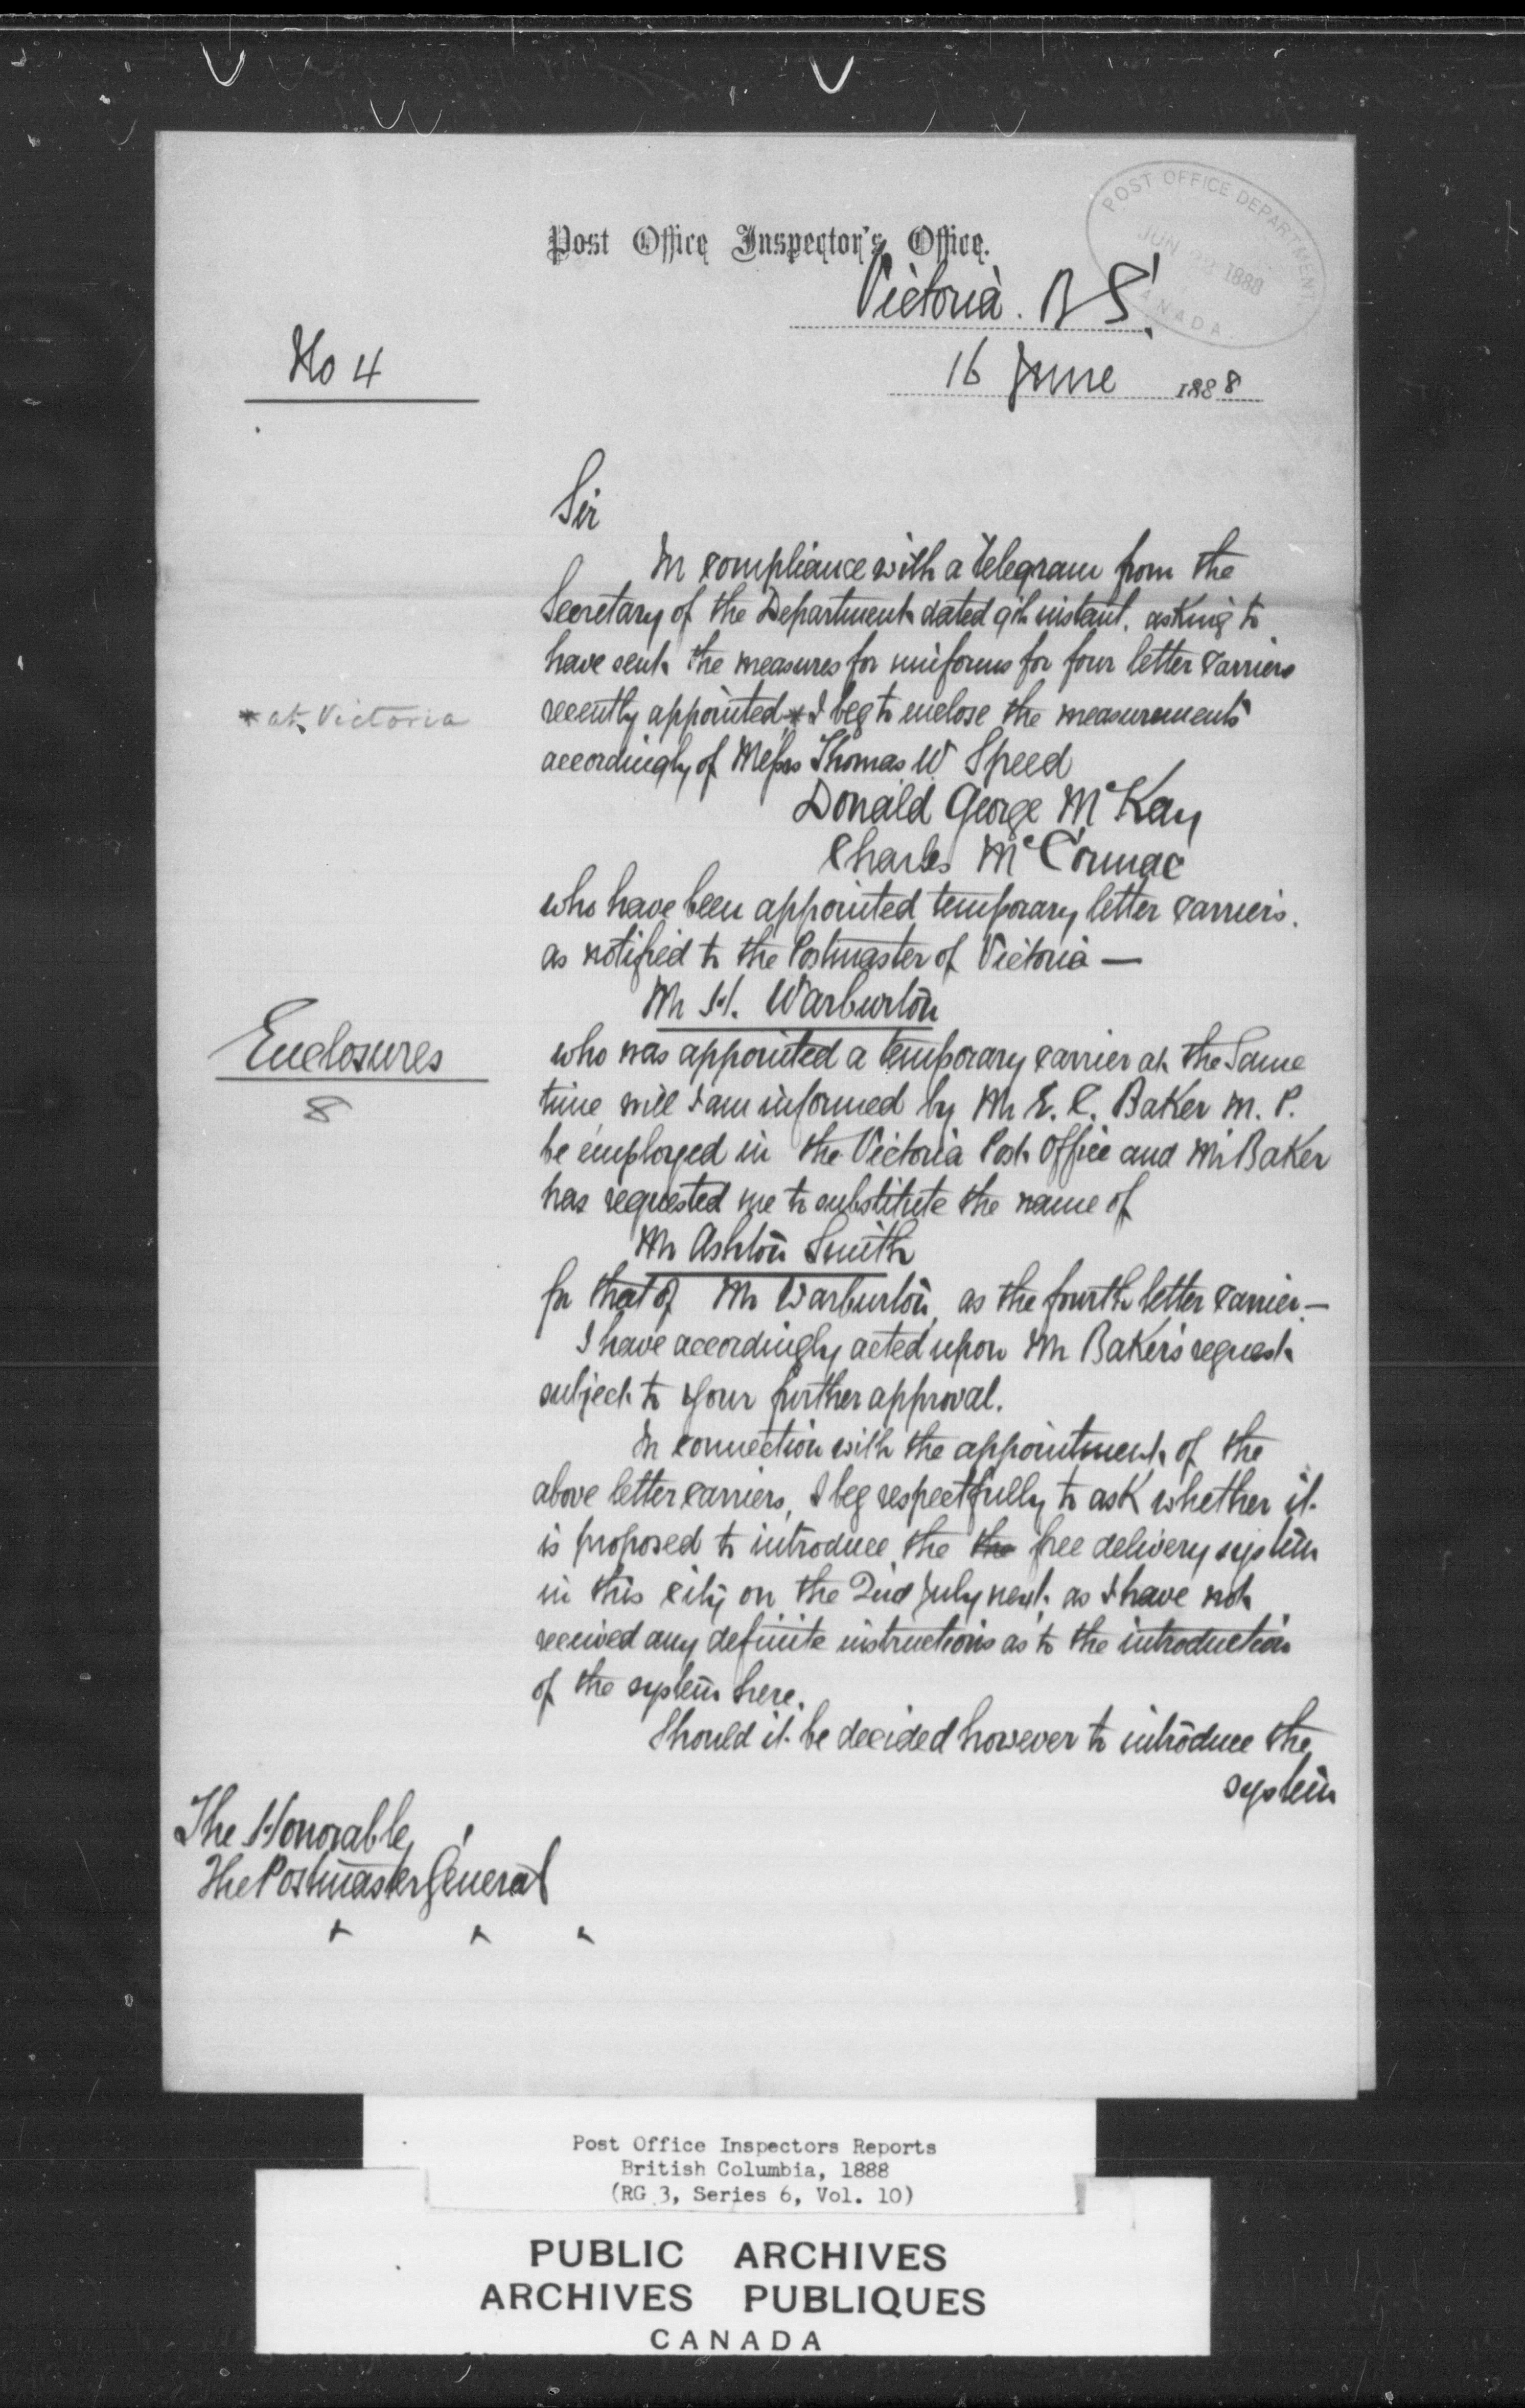 POST OFFICE DEPARTMENT
JUN 1888
CANADA.
Post Office Inspector's Office.
Victoria. B C.
No 4
16 June 1888
Sir
In compliance with a Telegram from the
Secretary of the Department dated 9th instant. asking to
have sent the measures for uniforms for four letter carriers
recently appointed * I beg to enclose the measurements
* at Victoria
accordingly of Messrs Thomas W Speed
Donald George McKay
Charles McCormac
who have been appointed temporary letter carriers.
as notified to the Postmaster of Victoria —
Mr H. Warburton
Enclosures
8
who was appointed a temporary carrier at the same
time will I am informed by Mr E. C. Baker M. P.
be employed in the Victoria Post Office and Mr Baker
has requested me to substitute the name of
Mr Ashton Smith
for that of Mr Warburton, as the fourth letter carrier. —
I have accordingly acted upon Mr Baker's request
subject to your further approval.
In connection with the appointment of the
above letter carriers, I beg respectfully to ask whether it
is proposed to introduce the the free delivery system
in this city on the 2nd July next as I have not
received any definite instructions as to the introduction
of the system here.
Should it be decided however to introduce the
system
The Honorable
The Postmaster General
Post Office Inspectors Reports
British Columbia, 1888
(RG 3, Series 6, Vol. 10)
PUBLIC ARCHIVES
ARCHIVES PUBLIQUES
CANADA